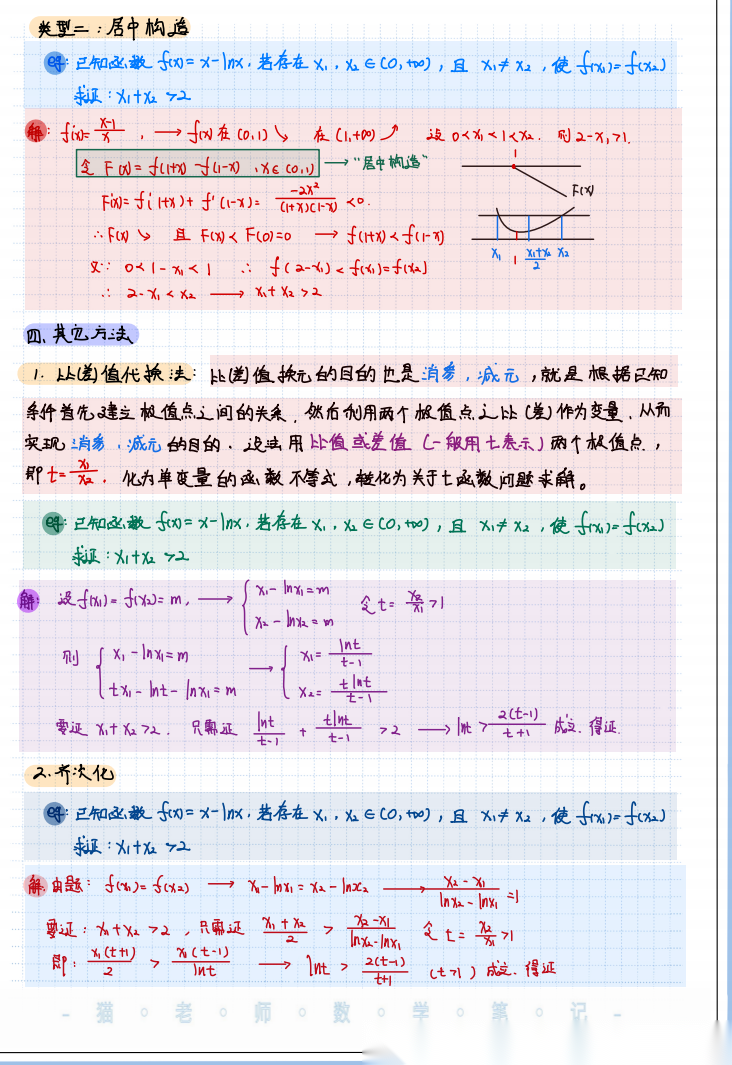 类型二：居中构造
例：已知函数 f(x)=x-lnx，若存在 x₁，x₂∈(0,+∞)，且 x₁≠x₂，使 f(x₁)=f(x₂)
求证：x₁+x₂>2
解：f'(x)=(x-1)/x ，→ f(x) 在(0,1)↘ 在(1,+∞)↗ 设 0<x₁<1<x₂. 则 2-x₁>1.
令 F(x)=f(1+x)-f(1-x) ，x∈(0,1) → “居中构造”
F'(x)=f'(1+x)+f'(1-x)= -2x²/((1+x)(1-x)) <0.
∴F(x)↘ 且 F(x)<F(0)=0 → f(1+x)<f(1-x)
又∵ 0<1-x₁<1 ∴ f(2-x₁)<f(x₁)=f(x₂)
∴ 2-x₁<x₂ → x₁+x₂>2
1
F(x)
x₁ 1 (x₁+x₂)/2 x₂
四、其它方法
1. 比(差)值代换法：比(差)值换元的目的也是消参，减元，就是根据已知
条件首先建立极值点之间的关系，然后利用两个极值点之比(差)作为变量，从而
实现消参，减元的目的．设法用比值或差值(一般用t表示)两个极值点，
即 t=x₁/x₂．化为单变量的函数不等式，转化为关于t函数问题求解。
例：已知函数 f(x)=x-lnx，若存在 x₁，x₂∈(0,+∞)，且 x₁≠x₂，使 f(x₁)=f(x₂)
求证：x₁+x₂>2
解：设f(x₁)=f(x₂)=m，→ { x₁-lnx₁=m
x₂-lnx₂=m 令 t=x₂/x₁>1
则 { x₁-lnx₁=m → { x₁=lnt/(t-1)
tx₁-lnt-lnx₁=m x₂=tlnt/(t-1)
要证 x₁+x₂>2．只需证 lnt/(t-1) + tlnt/(t-1) >2 → lnt>2(t-1)/(t+1) 成立．得证．
2.齐次化
例：已知函数 f(x)=x-lnx，若存在 x₁，x₂∈(0,+∞)，且 x₁≠x₂，使 f(x₁)=f(x₂)
求证：x₁+x₂>2
解．由题：f(x₁)=f(x₂) → x₁-lnx₁=x₂-lnx₂ → (x₂-x₁)/(lnx₂-lnx₁)=1
要证：x₁+x₂>2 ，只需证 (x₁+x₂)/2 > (x₂-x₁)/(lnx₂-lnx₁) 令 t=x₂/x₁>1
即：x₁(t+1)/2 > x₁(t-1)/lnt → lnt > 2(t-1)/(t+1) (t>1) 成立．得证
- 猫 。 老 。 师 。 数 。 学 。 笔 。 记 -